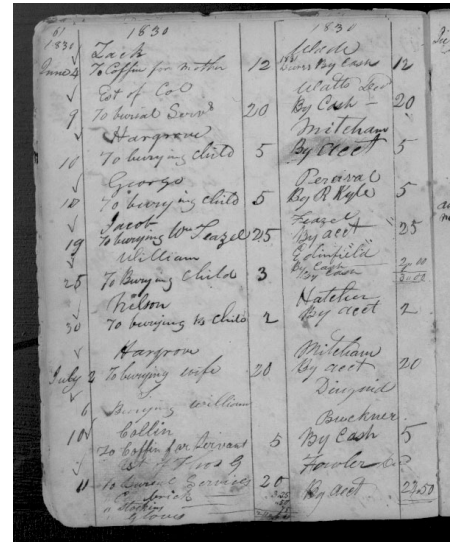 61 1830 1830
1830 Zack Wade
June 4 To Coffin for mother 12 By Cash 12
Est of Col Watts
9 To burial Serv 20 By Cash 20
Hargrove Mitcham
10 To burying child 5 By acct 5
George Percival
10 To burying child 5 By R Kyle 5
Jacob Teazel
19 To burying Wm Teazel 25 By acct 25
William Edinfield
25 To Burying Child 3 By Cash
Nilson Hatcher
30 To burying his child 2 By acct 2
Hargrove Mitcham
July 2 To burying wife 20 By acct 20
6 Burying William Dinguid
Collin Buckner
10 To Coffin for Servant 5 By Cash 5
Fowler
11 To Burial Service 20 By acct 23.50
" Stocking
" Gloves